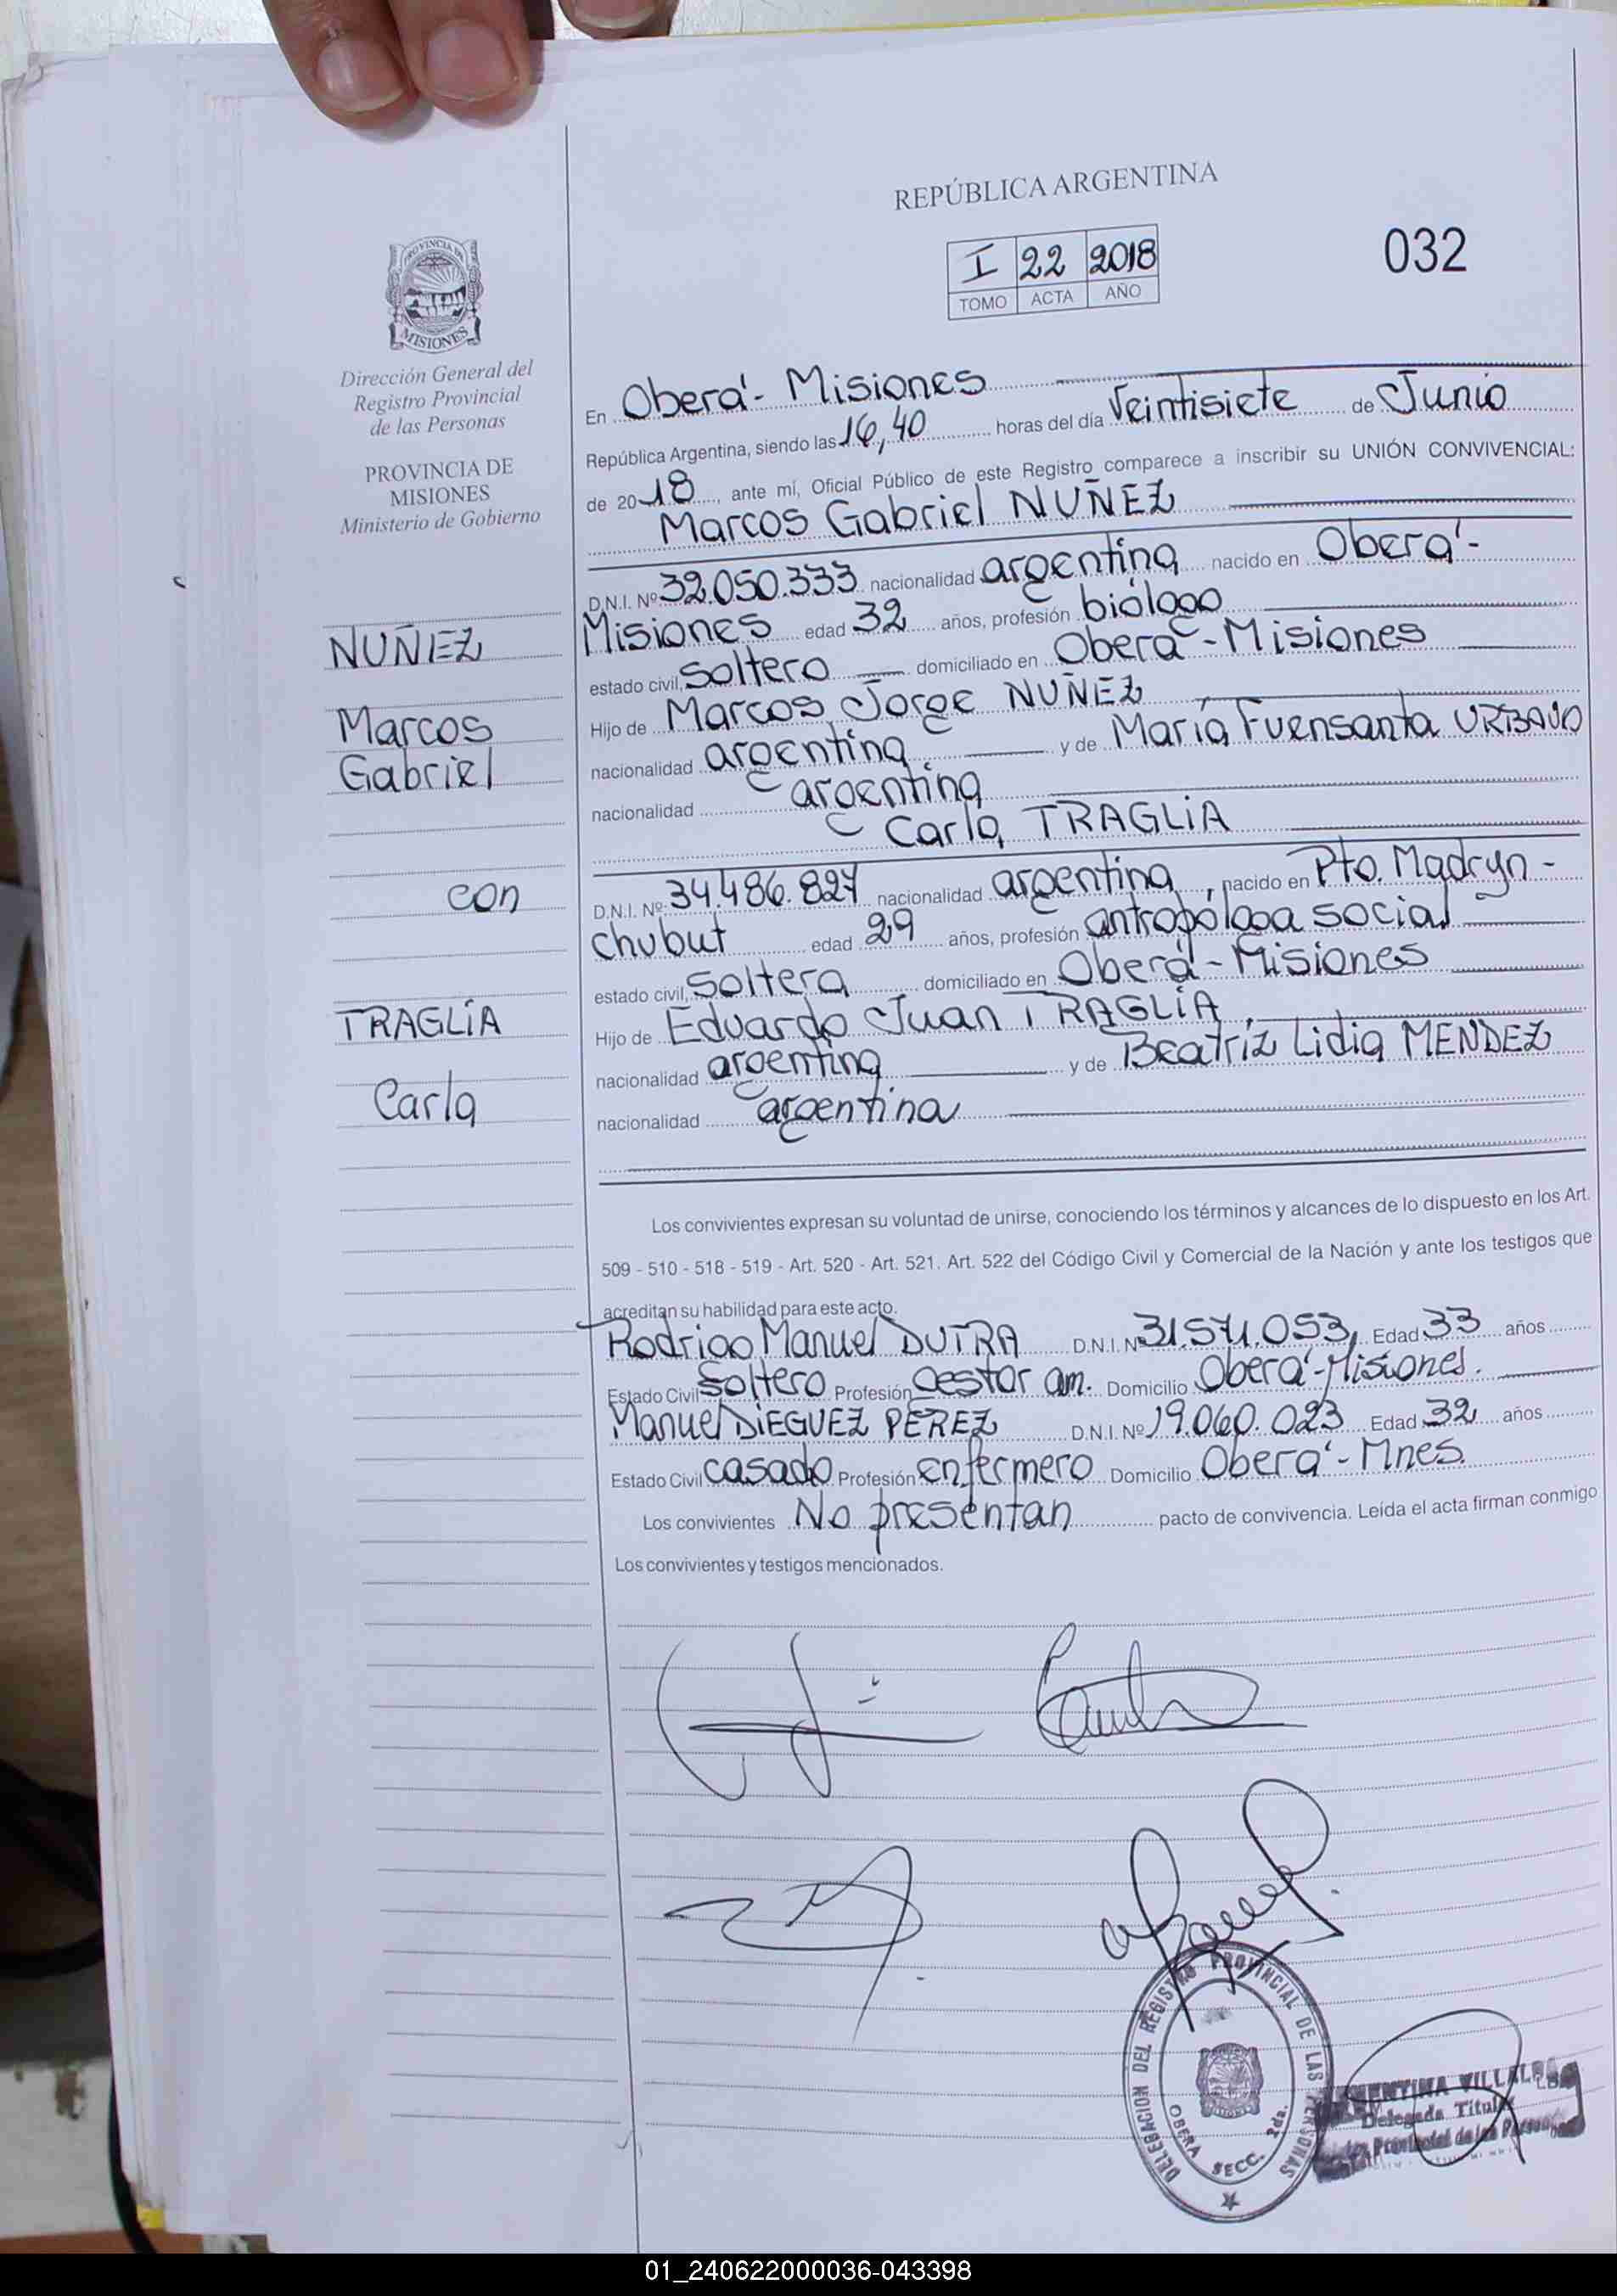 REPÚBLICA ARGENTINA
I 22 2018
TOMO ACTA AÑO
032
PROVINCIA DE
MISIONES
Dirección General del
Registro Provincial
de las Personas
PROVINCIA DE
MISIONES
Ministerio de Gobierno
NUÑEZ
Marcos
Gabriel
con
TRAGLIA
Carla
En Oberá - Misiones
República Argentina, siendo las 16,40 horas del día Veintisiete de Junio
de 2018, ante mí, Oficial Público de este Registro comparece a inscribir su UNIÓN CONVIVENCIAL:
Marcos Gabriel NUÑEZ
D.N.I. Nº 32.050.333 nacionalidad argentina nacido en Oberá -
Misiones edad 32 años, profesión biólogo
estado civil, Soltero domiciliado en Oberá - Misiones
Hijo de Marcos Jorge NUÑEZ
nacionalidad argentina y de María Fuensanta URBANO
nacionalidad argentina
Carla TRAGLIA
D.N.I. Nº 34.486.827 nacionalidad argentina, nacido en Pto. Madryn -
Chubut edad 29 años, profesión antropóloga social
estado civil, Soltera domiciliado en Oberá - Misiones
Hijo de Eduardo Juan TRAGLIA
nacionalidad argentina y de Beatriz Lidia MENDEZ
nacionalidad argentina
Los convivientes expresan su voluntad de unirse, conociendo los términos y alcances de lo dispuesto en los Art.
509 - 510 - 518 - 519 - Art. 520 - Art. 521. Art. 522 del Código Civil y Comercial de la Nación y ante los testigos que
acreditan su habilidad para este acto.
Rodrigo Manuel DUTRA D.N.I. Nº 31.571.053, Edad 33 años
Estado Civil Soltero Profesión Gestor am. Domicilio Oberá - Misiones.
Manuel DIEGUEZ PEREZ D.N.I. Nº 19.060.023 Edad 32 años
Estado Civil casado Profesión enfermero Domicilio Oberá - Mnes.
Los convivientes No presentan pacto de convivencia. Leída el acta firman conmigo
Los convivientes y testigos mencionados.
DELEGACION DEL REGISTRO PROVINCIAL DE LAS PERSONAS
OBERA SECC. 2da.
VILLALBA
Delegada Titular
Provincial de las Personas
01_240622000036-043398